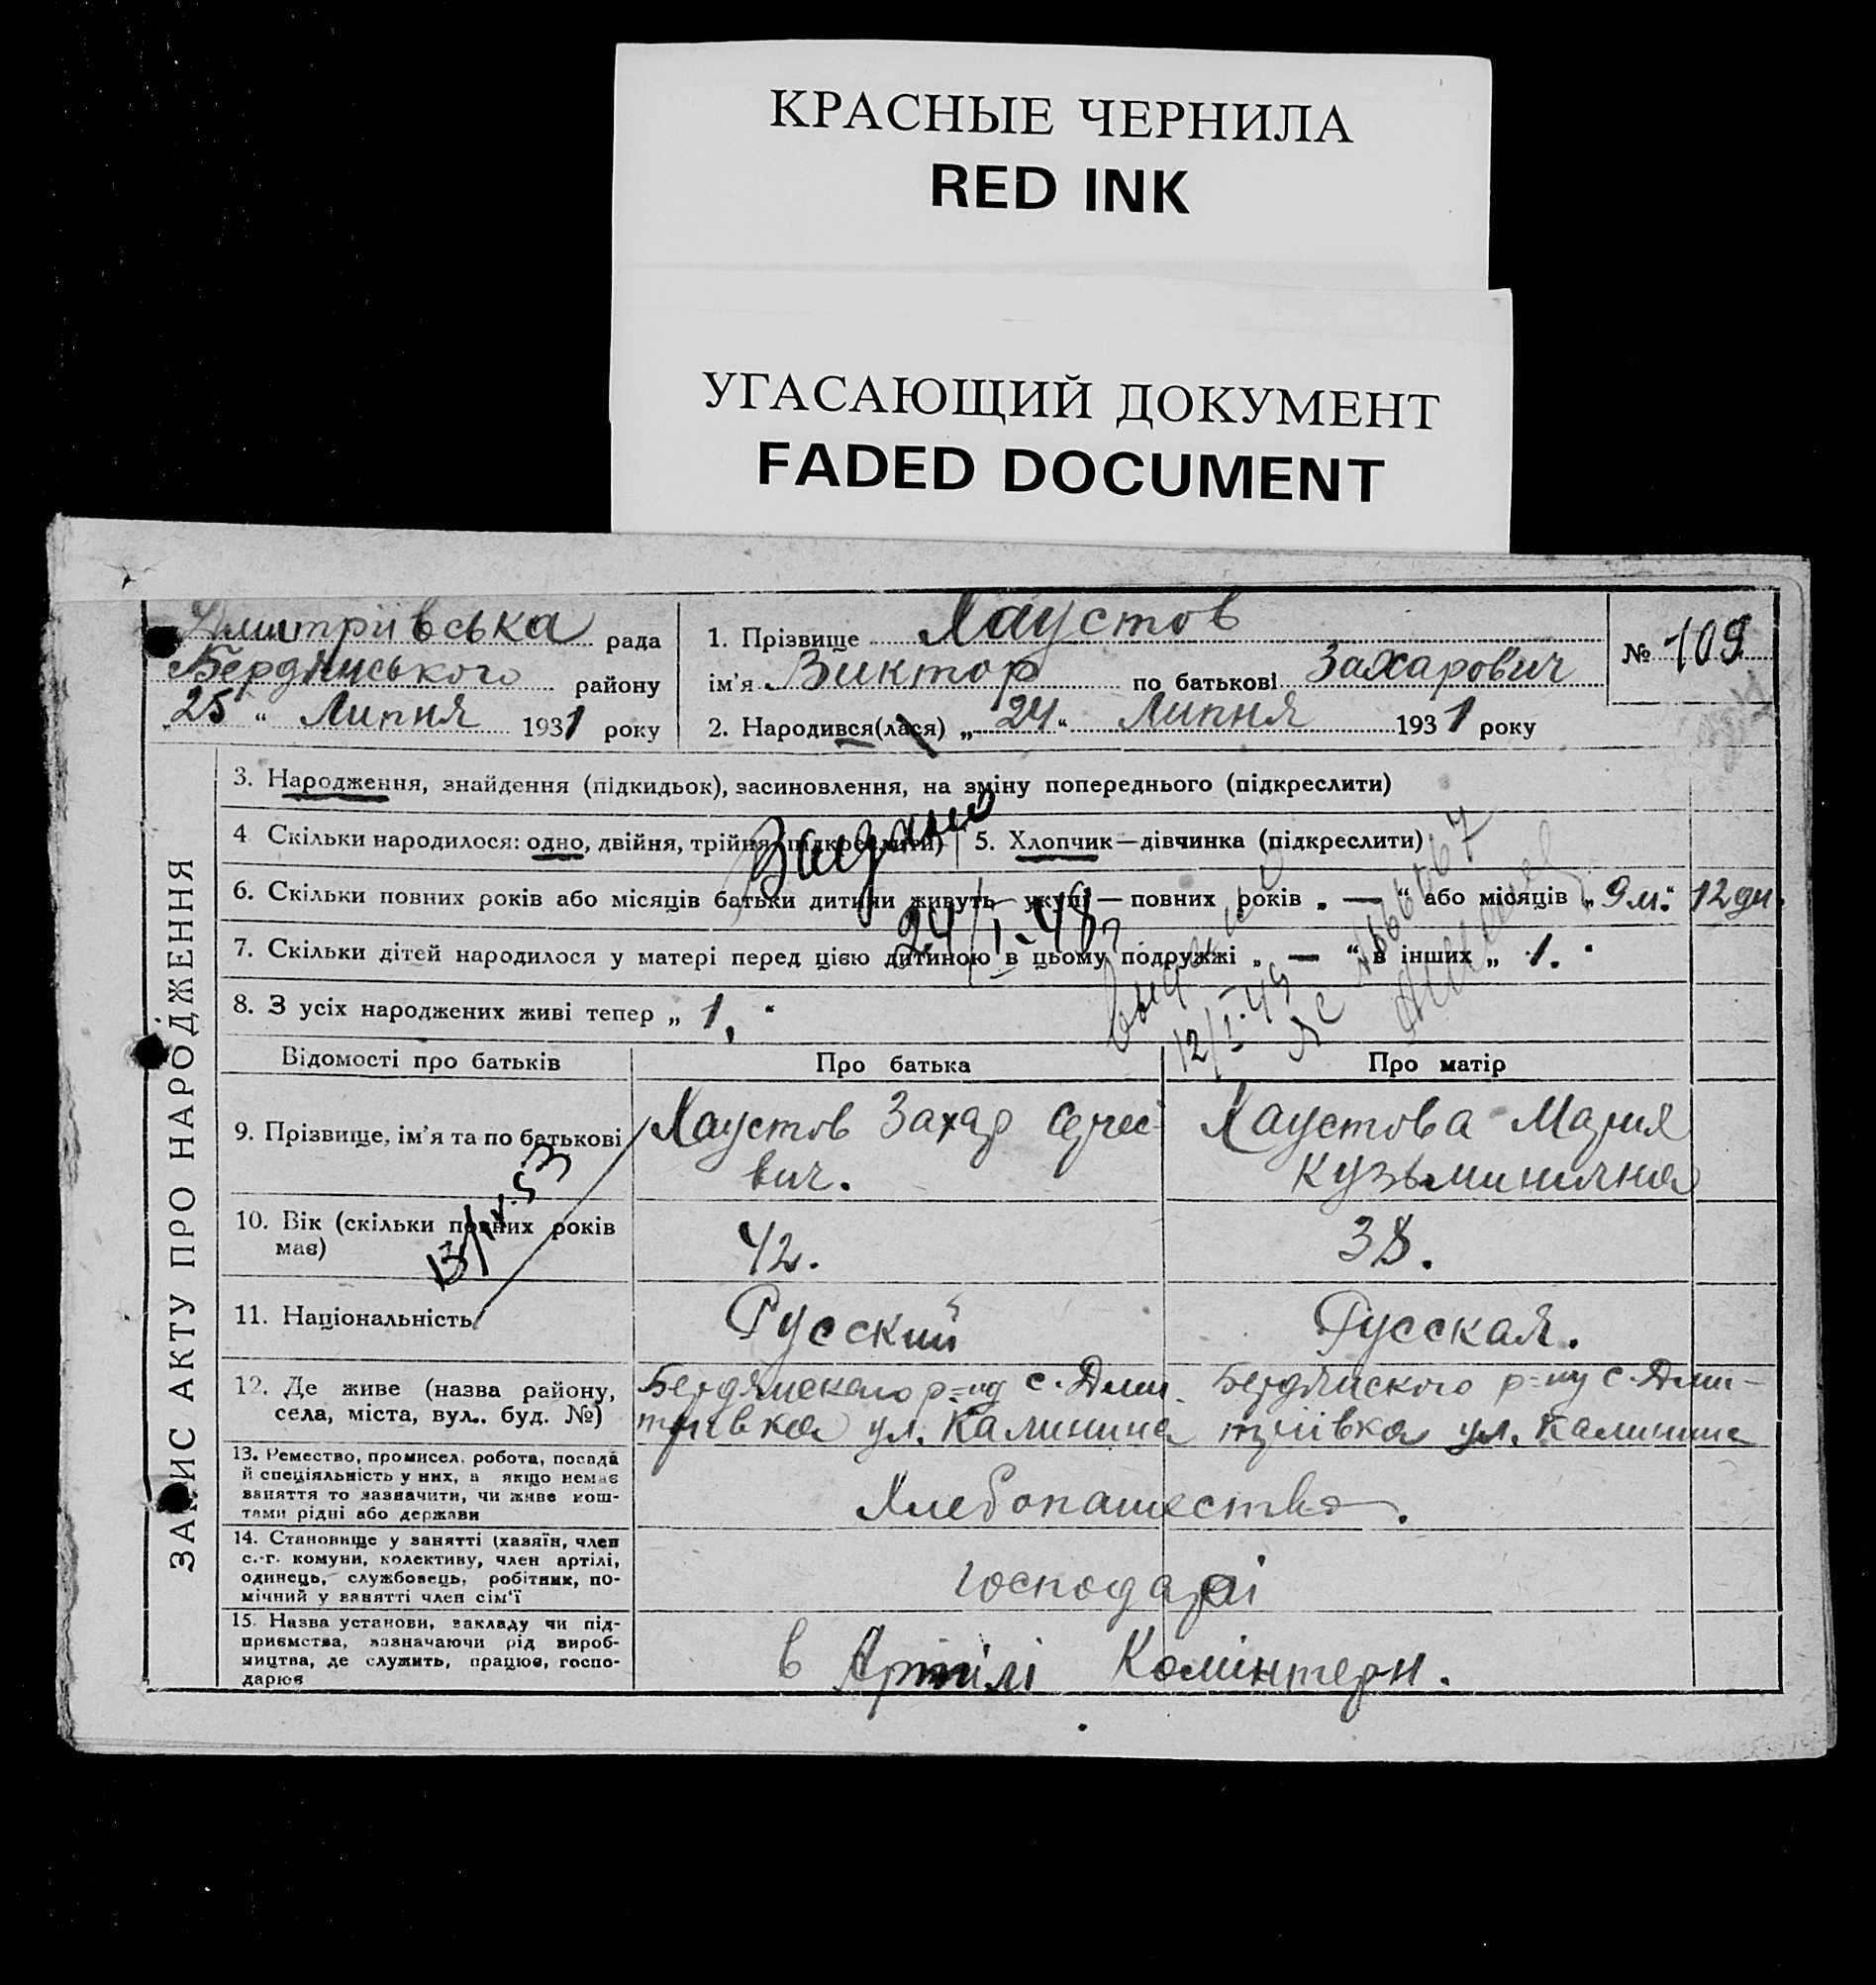 КРАСНЫЕ ЧЕРНИЛА
RED INK
УГАСАЮЩИЙ ДОКУМЕНТ
FADED DOCUMENT
Дмитріївська рада
Бердянського району
25 " Липня 1931 року
1. Прізвище Хаустов
ім'я Виктор по батькові Захарович
2. Народився(лася) „ 24 " Липня 1931 року
№ 109
ЗАПИС АКТУ ПРО НАРОДЖЕННЯ
3. Народження, знайдення (підкидьок), засиновлення, на зміну попереднього (підкреслити)
4 Скільки народилося: одно, двійня, трійня (підкреслити)
5. Хлопчик—дівчинка (підкреслити)
6. Скільки повних років або місяців батьки дитини живуть укупі—повних років „ — " або місяців „ 9 м. " 12 дн.
7. Скільки дітей народилося у матері перед цією дитиною в цьому подружжі „ — " в інших „ 1. "
8. З усіх народжених живі тепер „ 1. "
24/I-48
12/I-49
13/IV.53
Відомості про батьків
Про батька
Про матір
9. Прізвище, ім'я та по батькові
Хаустов Захар
вич.
Хаустова Мария
Кузьминична
10. Вік (скільки повних років
має)
42.
38.
11. Національність
Русский
Русская.
12. Де живе (назва району,
села, міста, вул.. буд. №)
Бердянского р-ну с. Дми-
тріївка ул. Калинина
Бердянского р-ну с. Дми-
тріївка ул. Калинина
13. Ремество, промисел, робота, посада
й спеціяльність у них, а якщо немає
заняття то зазначити, чи живе кош-
тами рідні або держави
Хлебопашество.
14. Становище у занятті (хазяїн, член
с.-г. комуни, колективу, член артілі,
одинець, службовець, робітник, по-
мічний у занятті член сім'ї
господарі
15. Назва установи, закладу чи під-
приємства, зазначаючи рід вироб-
ництва, де служить, працює, госпо-
дарює
в Артілі Комінтерн.